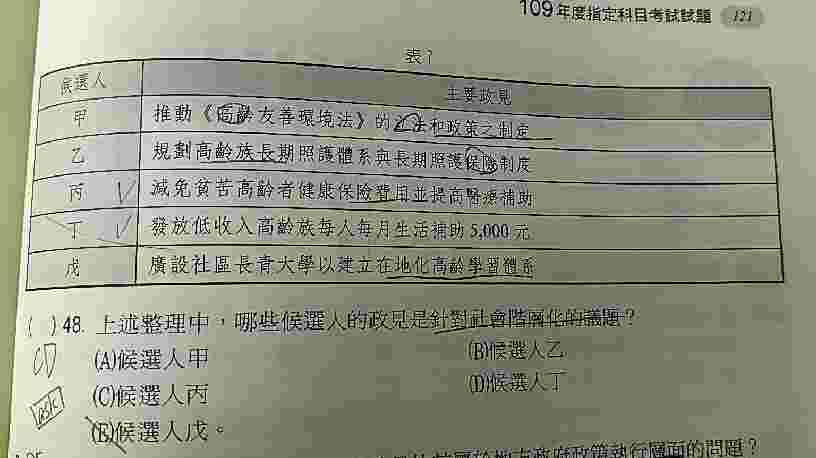 109年度指定科目考試試題 121
表7
候選人 主要政見
甲 推動《高齡友善環境法》的立法和政策之制定
乙 規劃高齡族長期照護體系與長期照護保險制度
丙 減免貧苦高齡者健康保險費用並提高醫療補助
丁 發放低收入高齡族每人每月生活補助5,000元
戊 廣設社區長青大學以建立在地化高齡學習體系
( )48. 上述整理中，哪些候選人的政見是針對社會階層化的議題？
CD (A)候選人甲 (B)候選人乙
(C)候選人丙 (D)候選人丁
ask
(E)候選人戊。
屬於地方政府政策執行層面的問題？